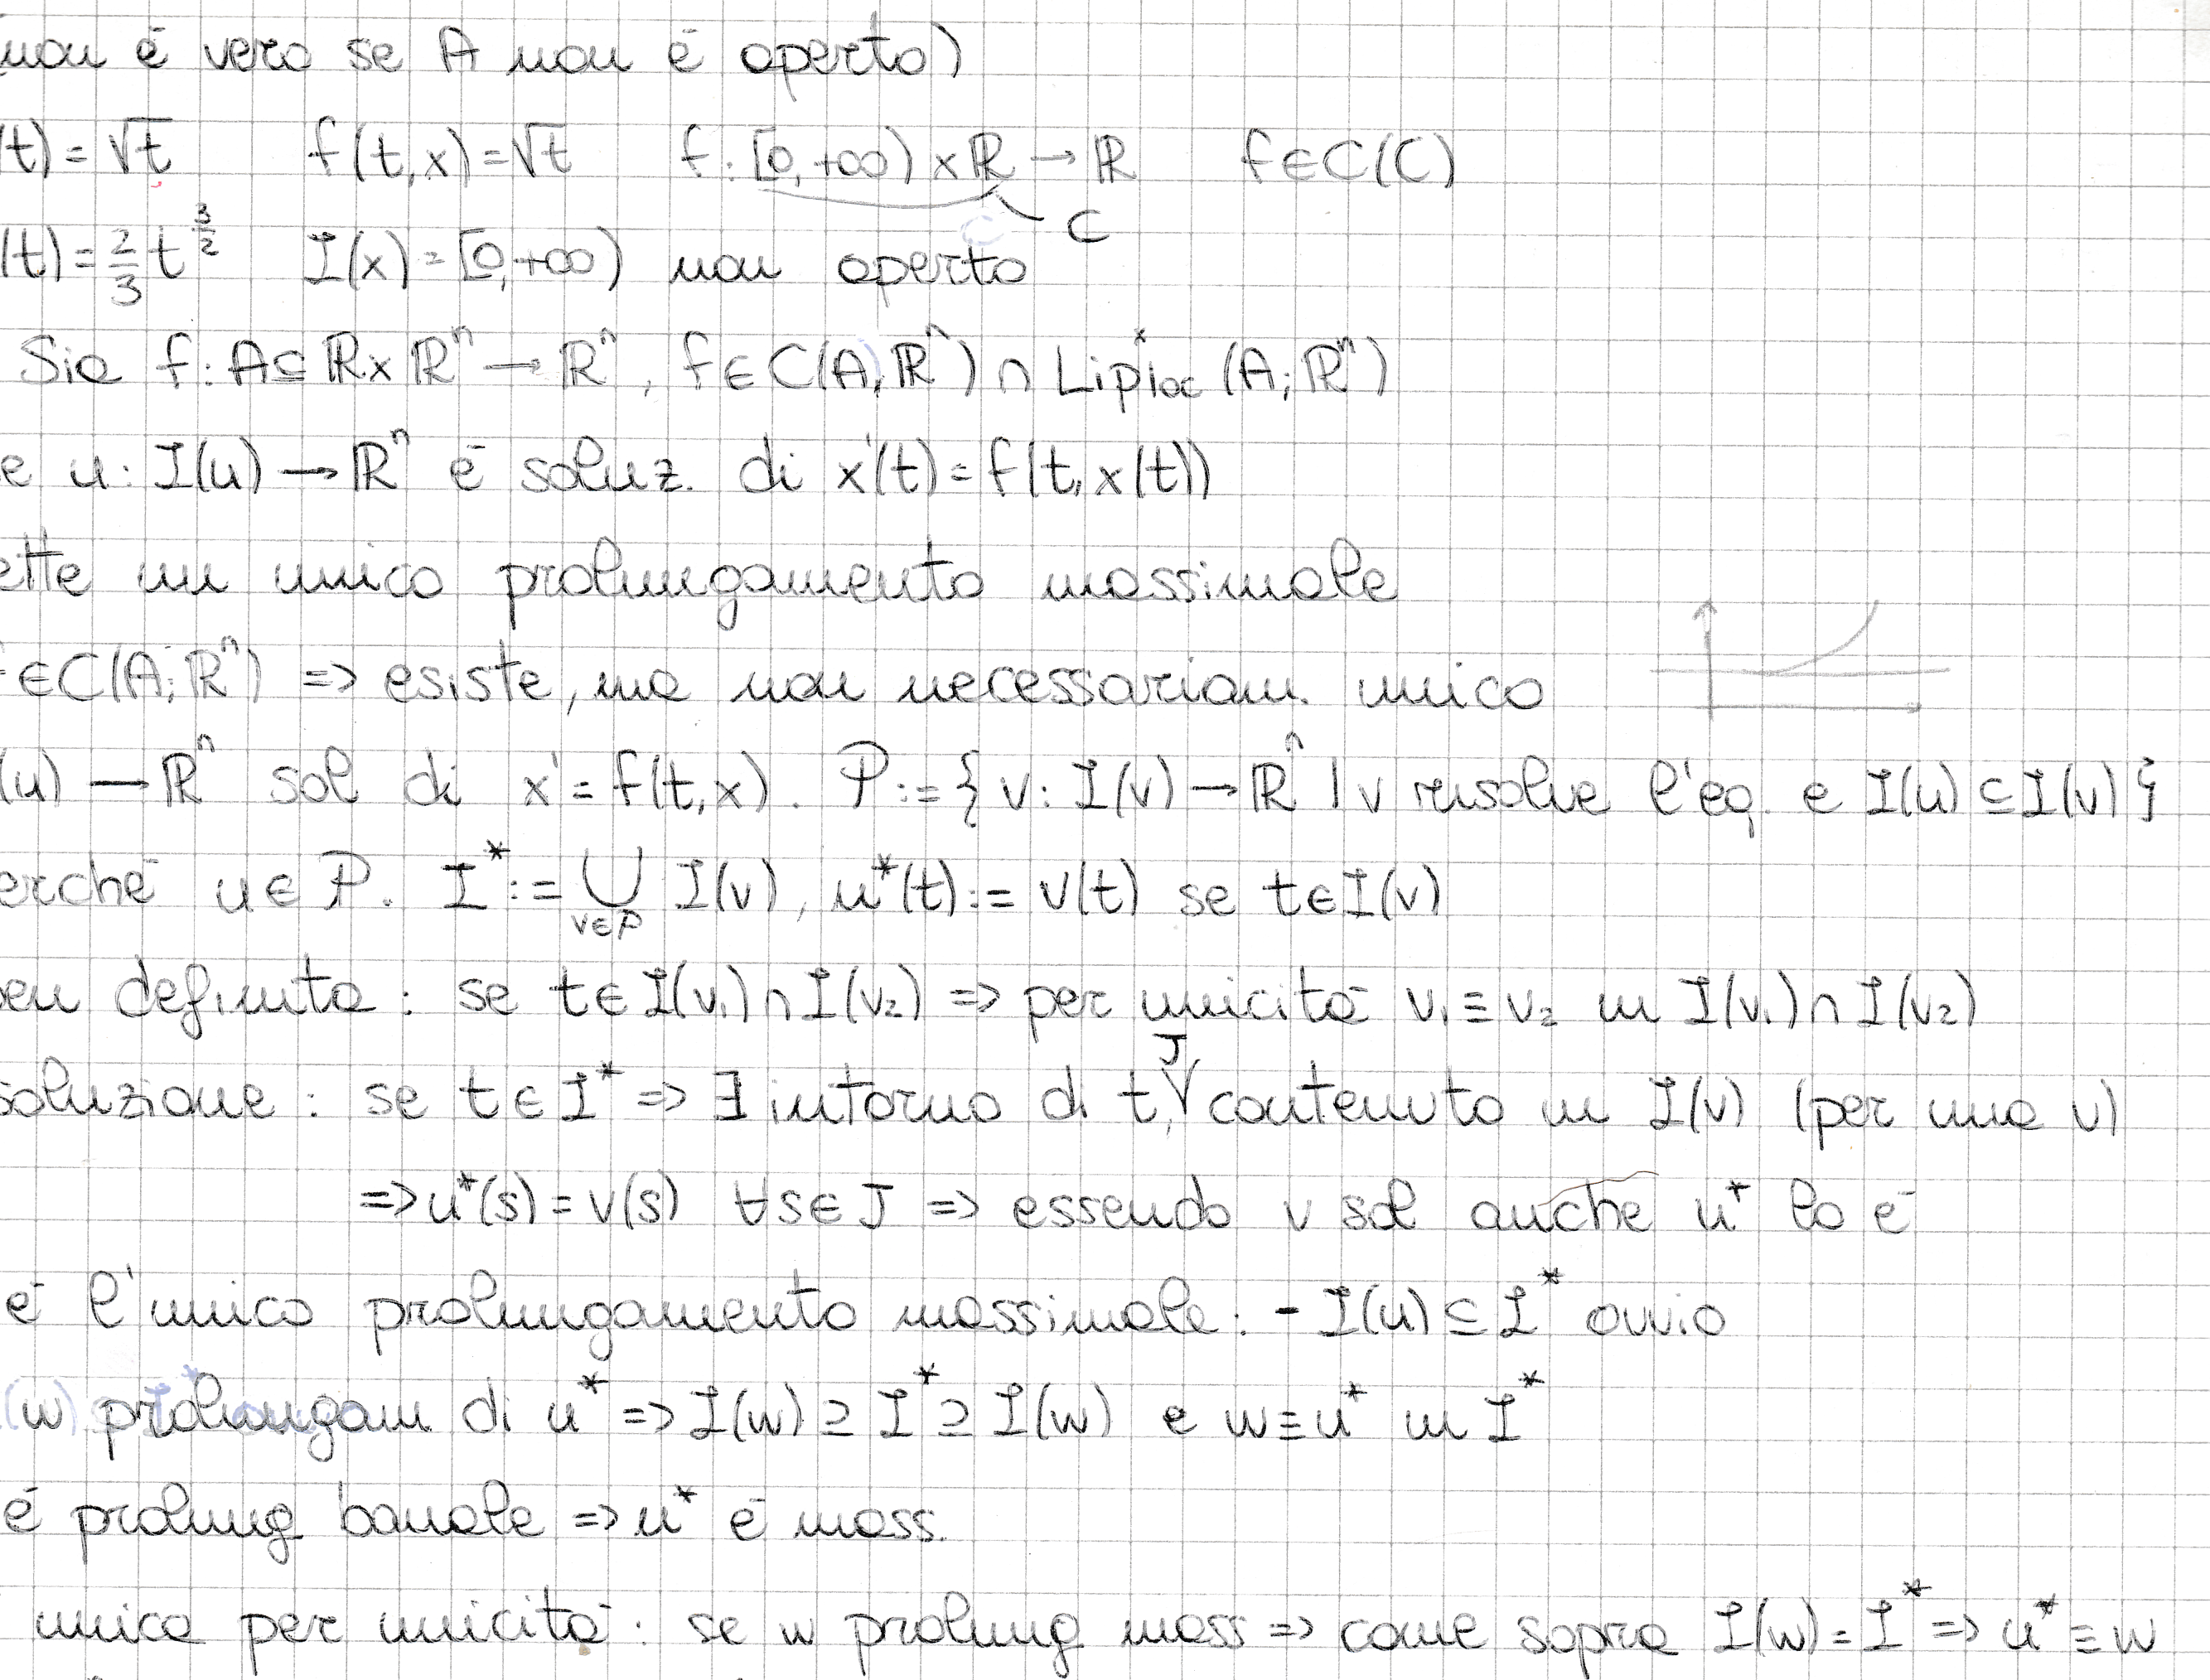 non è vero se A non è aperto)
(t) = √t f(t,x) = √t f: [0,+∞) × ℝ → ℝ f ∈ C(C)
C
(t) = 2/3 t^(3/2) I(x) = [0,+∞) non aperto
Sia f: A ⊆ ℝ × ℝⁿ → ℝⁿ, f ∈ C(A, ℝⁿ) ∩ Lipˣloc (A; ℝⁿ)
e u: I(u) → ℝⁿ è soluz. di x'(t) = f(t, x(t))
ette un unico prolungamento massimale
∈ C(A; ℝⁿ) => esiste, ma non necessariam. unico
(u) → ℝⁿ sol di x' = f(t,x). P := { v: I(v) → ℝⁿ | v risolve l'eq. e I(u) ⊆ I(v) }
erché u ∈ P. I* := ⋃ v∈P I(v), u*(t) := v(t) se t ∈ I(v)
en definita: se t ∈ I(v₁) ∩ I(v₂) => per unicità v₁ ≡ v₂ in I(v₁) ∩ I(v₂)
soluzione: se t ∈ I* => ∃ intorno di t, J contenuto in I(v) (per una v)
=> u*(s) = v(s) ∀s ∈ J => essendo v sol anche u* lo è
è l'unico prolungamento massimale: - I(u) ⊆ I* ovvio
w prolungam di u* => I(w) ⊇ I* ⊇ I(w) e w ≡ u* in I*
è prolung banale => u* è mass.
unica per unicità: se w prolung mass => come sopra I(w) = I* => u* ≡ w